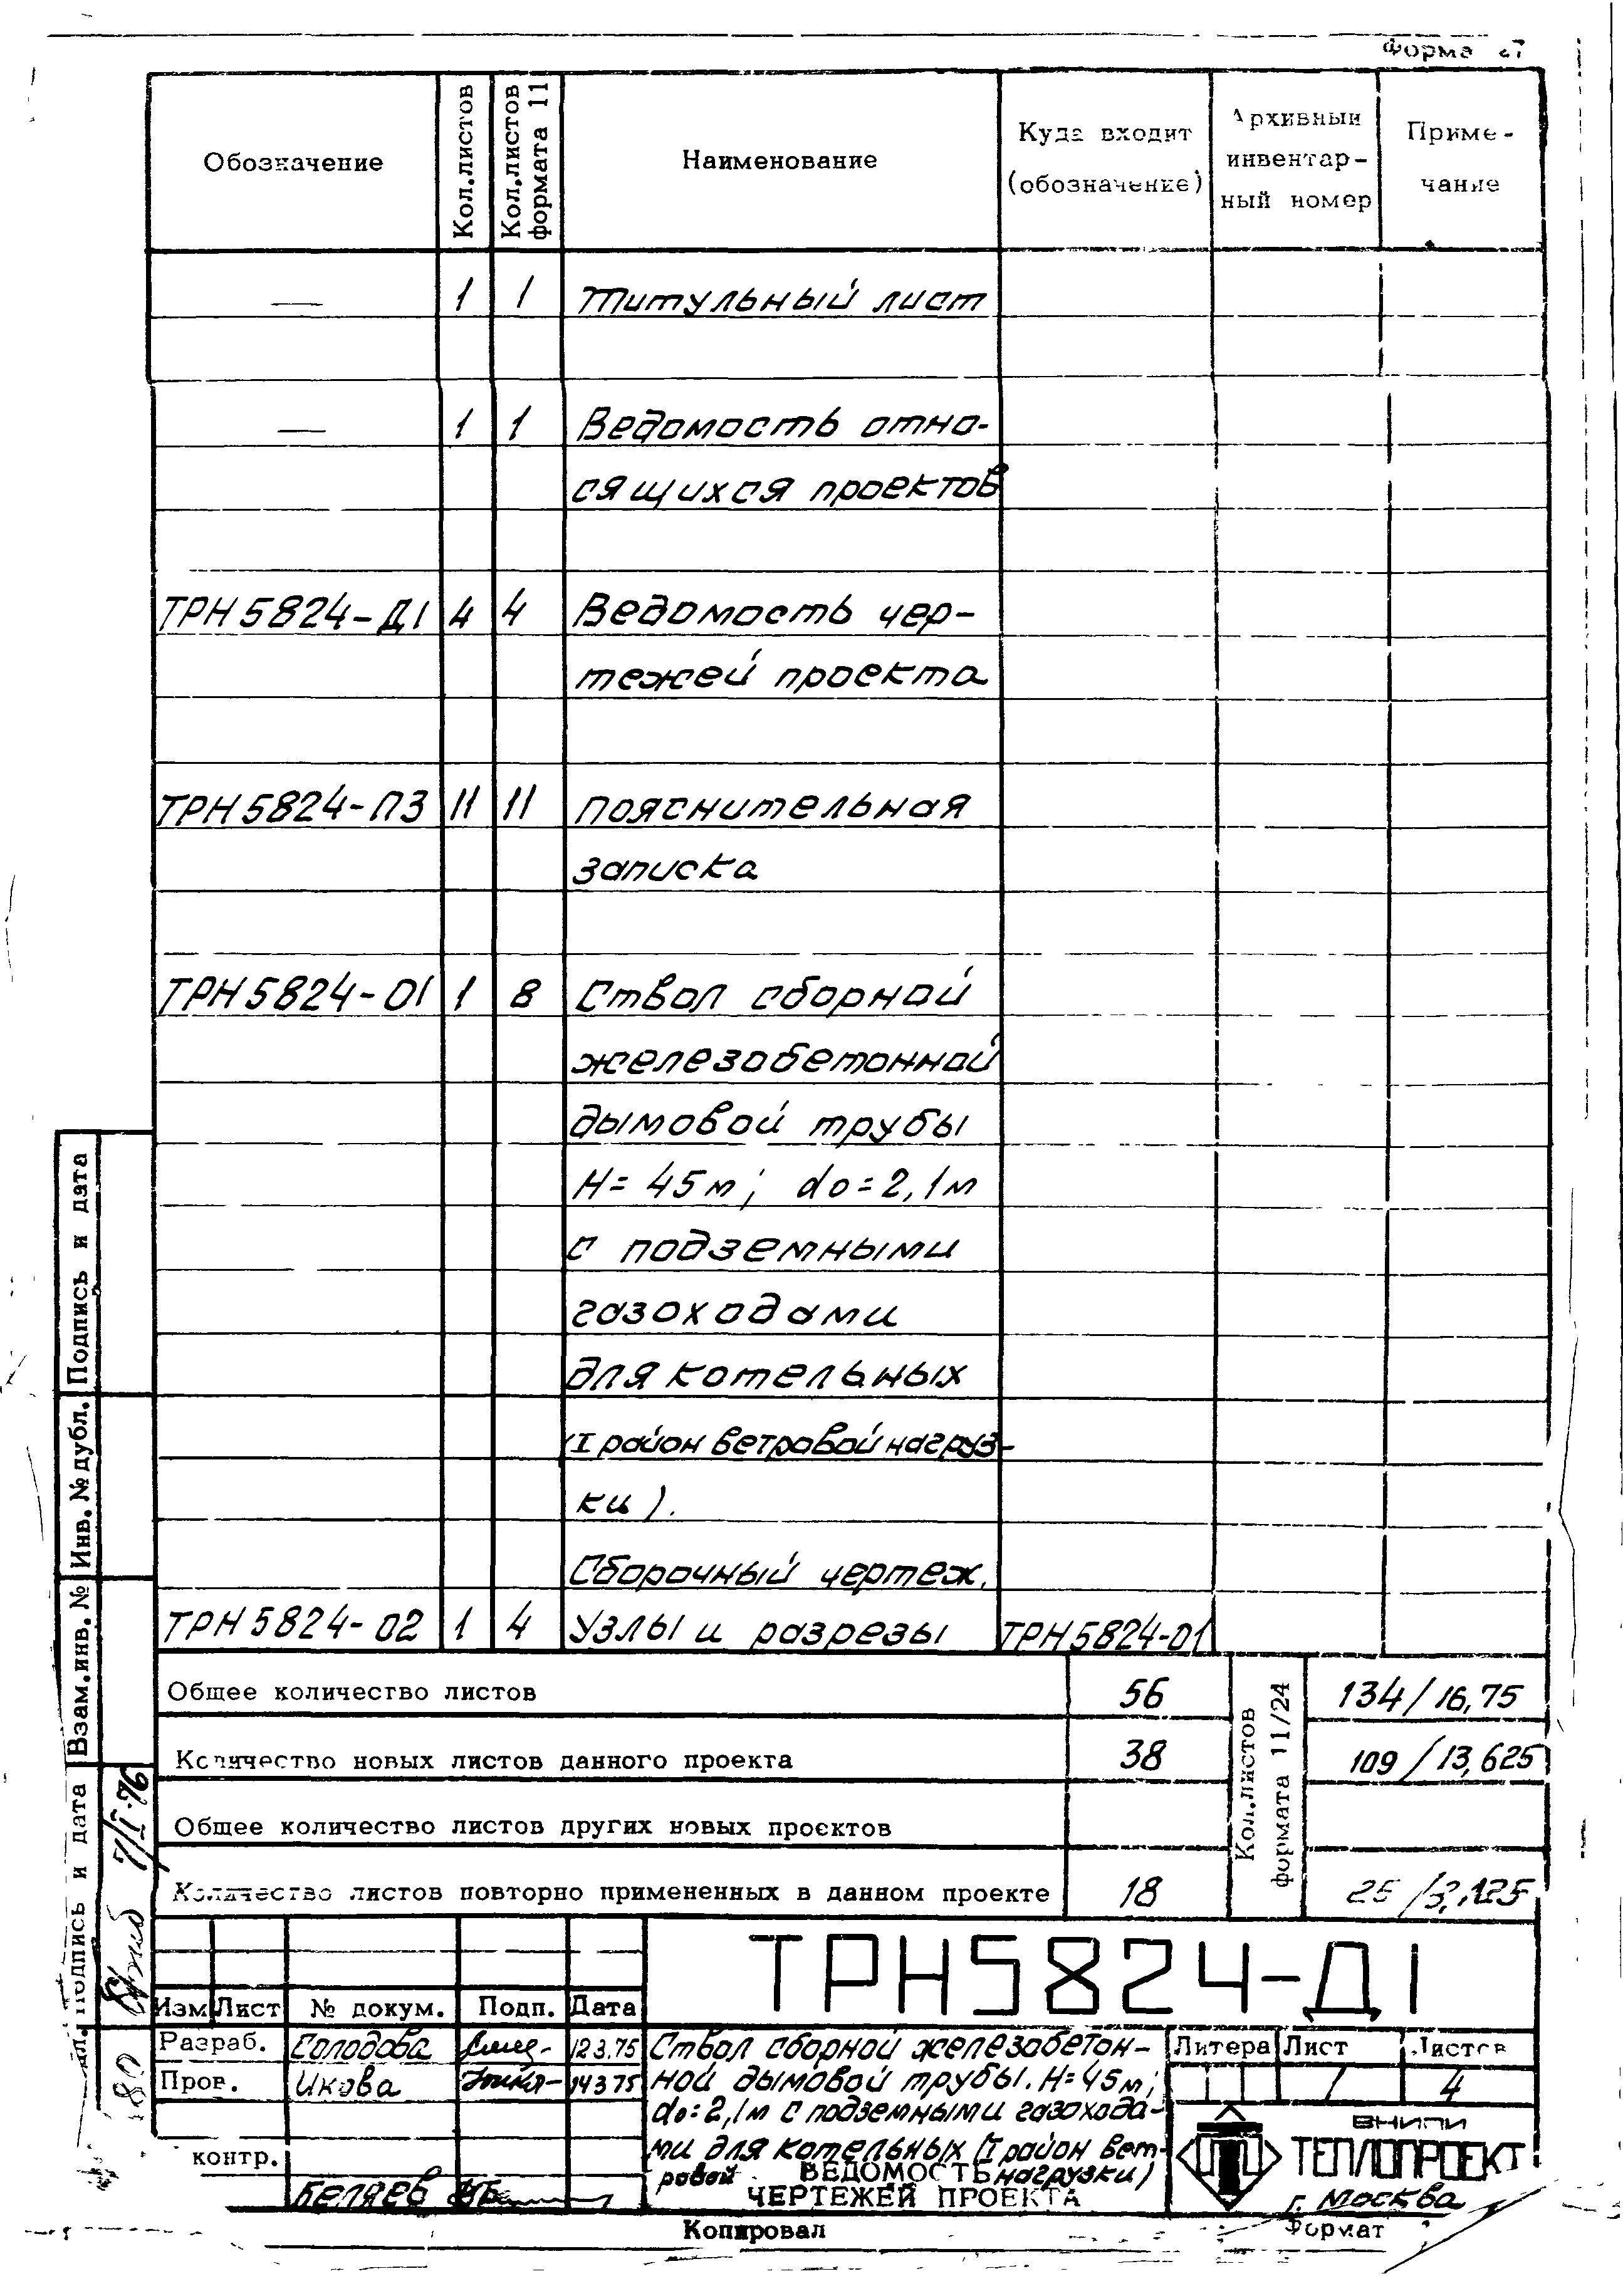 Форма 27
Обозначение
Кол.листов
Кол.листов формата 11
Наименование
Куда входит (обозначение)
Архивный инвентар- ный номер
Приме- чание
— 1 1 Титульный лист
— 1 1 Ведомость отно-
сящихся проектов
ТРН5824-Д1 4 4 Ведомость чер-
тежей проекта
ТРН5824-ПЗ 11 11 Пояснительная
записка
ТРН5824-01 1 8 Ствол сборной
железобетонной
дымовой трубы
Н=45м; do=2,1м
с подземными
газоходами
для котельных
(I район ветровой нагруз-
ки).
Сборочный чертеж.
ТРН5824-02 1 4 Узлы и разрезы ТРН5824-01
Общее количество листов 56 134/16,75
Количество новых листов данного проекта 38 109/13,625
Общее количество листов других новых проектов
Количество листов повторно примененных в данном проекте 18 25/3,125
Кол.листов
формата 11/24
Подпись и дата
Инв.№ дубл.
Взам.инв.№
Подпись и дата
7/I-76
180
ТРН5824-Д1
Изм Лист № докум. Подп. Дата
Разраб. Солодова 12.3.75
Пров. Икова 14.3.75
контр.
Беляев
Ствол сборной железобетон-
ной дымовой трубы. Н=45м;
do=2,1м с подземными газохода-
ми для котельных (I район вет-
ровой нагрузки)
ВЕДОМОСТЬ
ЧЕРТЕЖЕЙ ПРОЕКТА
Литера Лист Листов
1 4
ВНИПИ
ТЕПЛОПРОЕКТ
г. Москва
Копировал
Формат